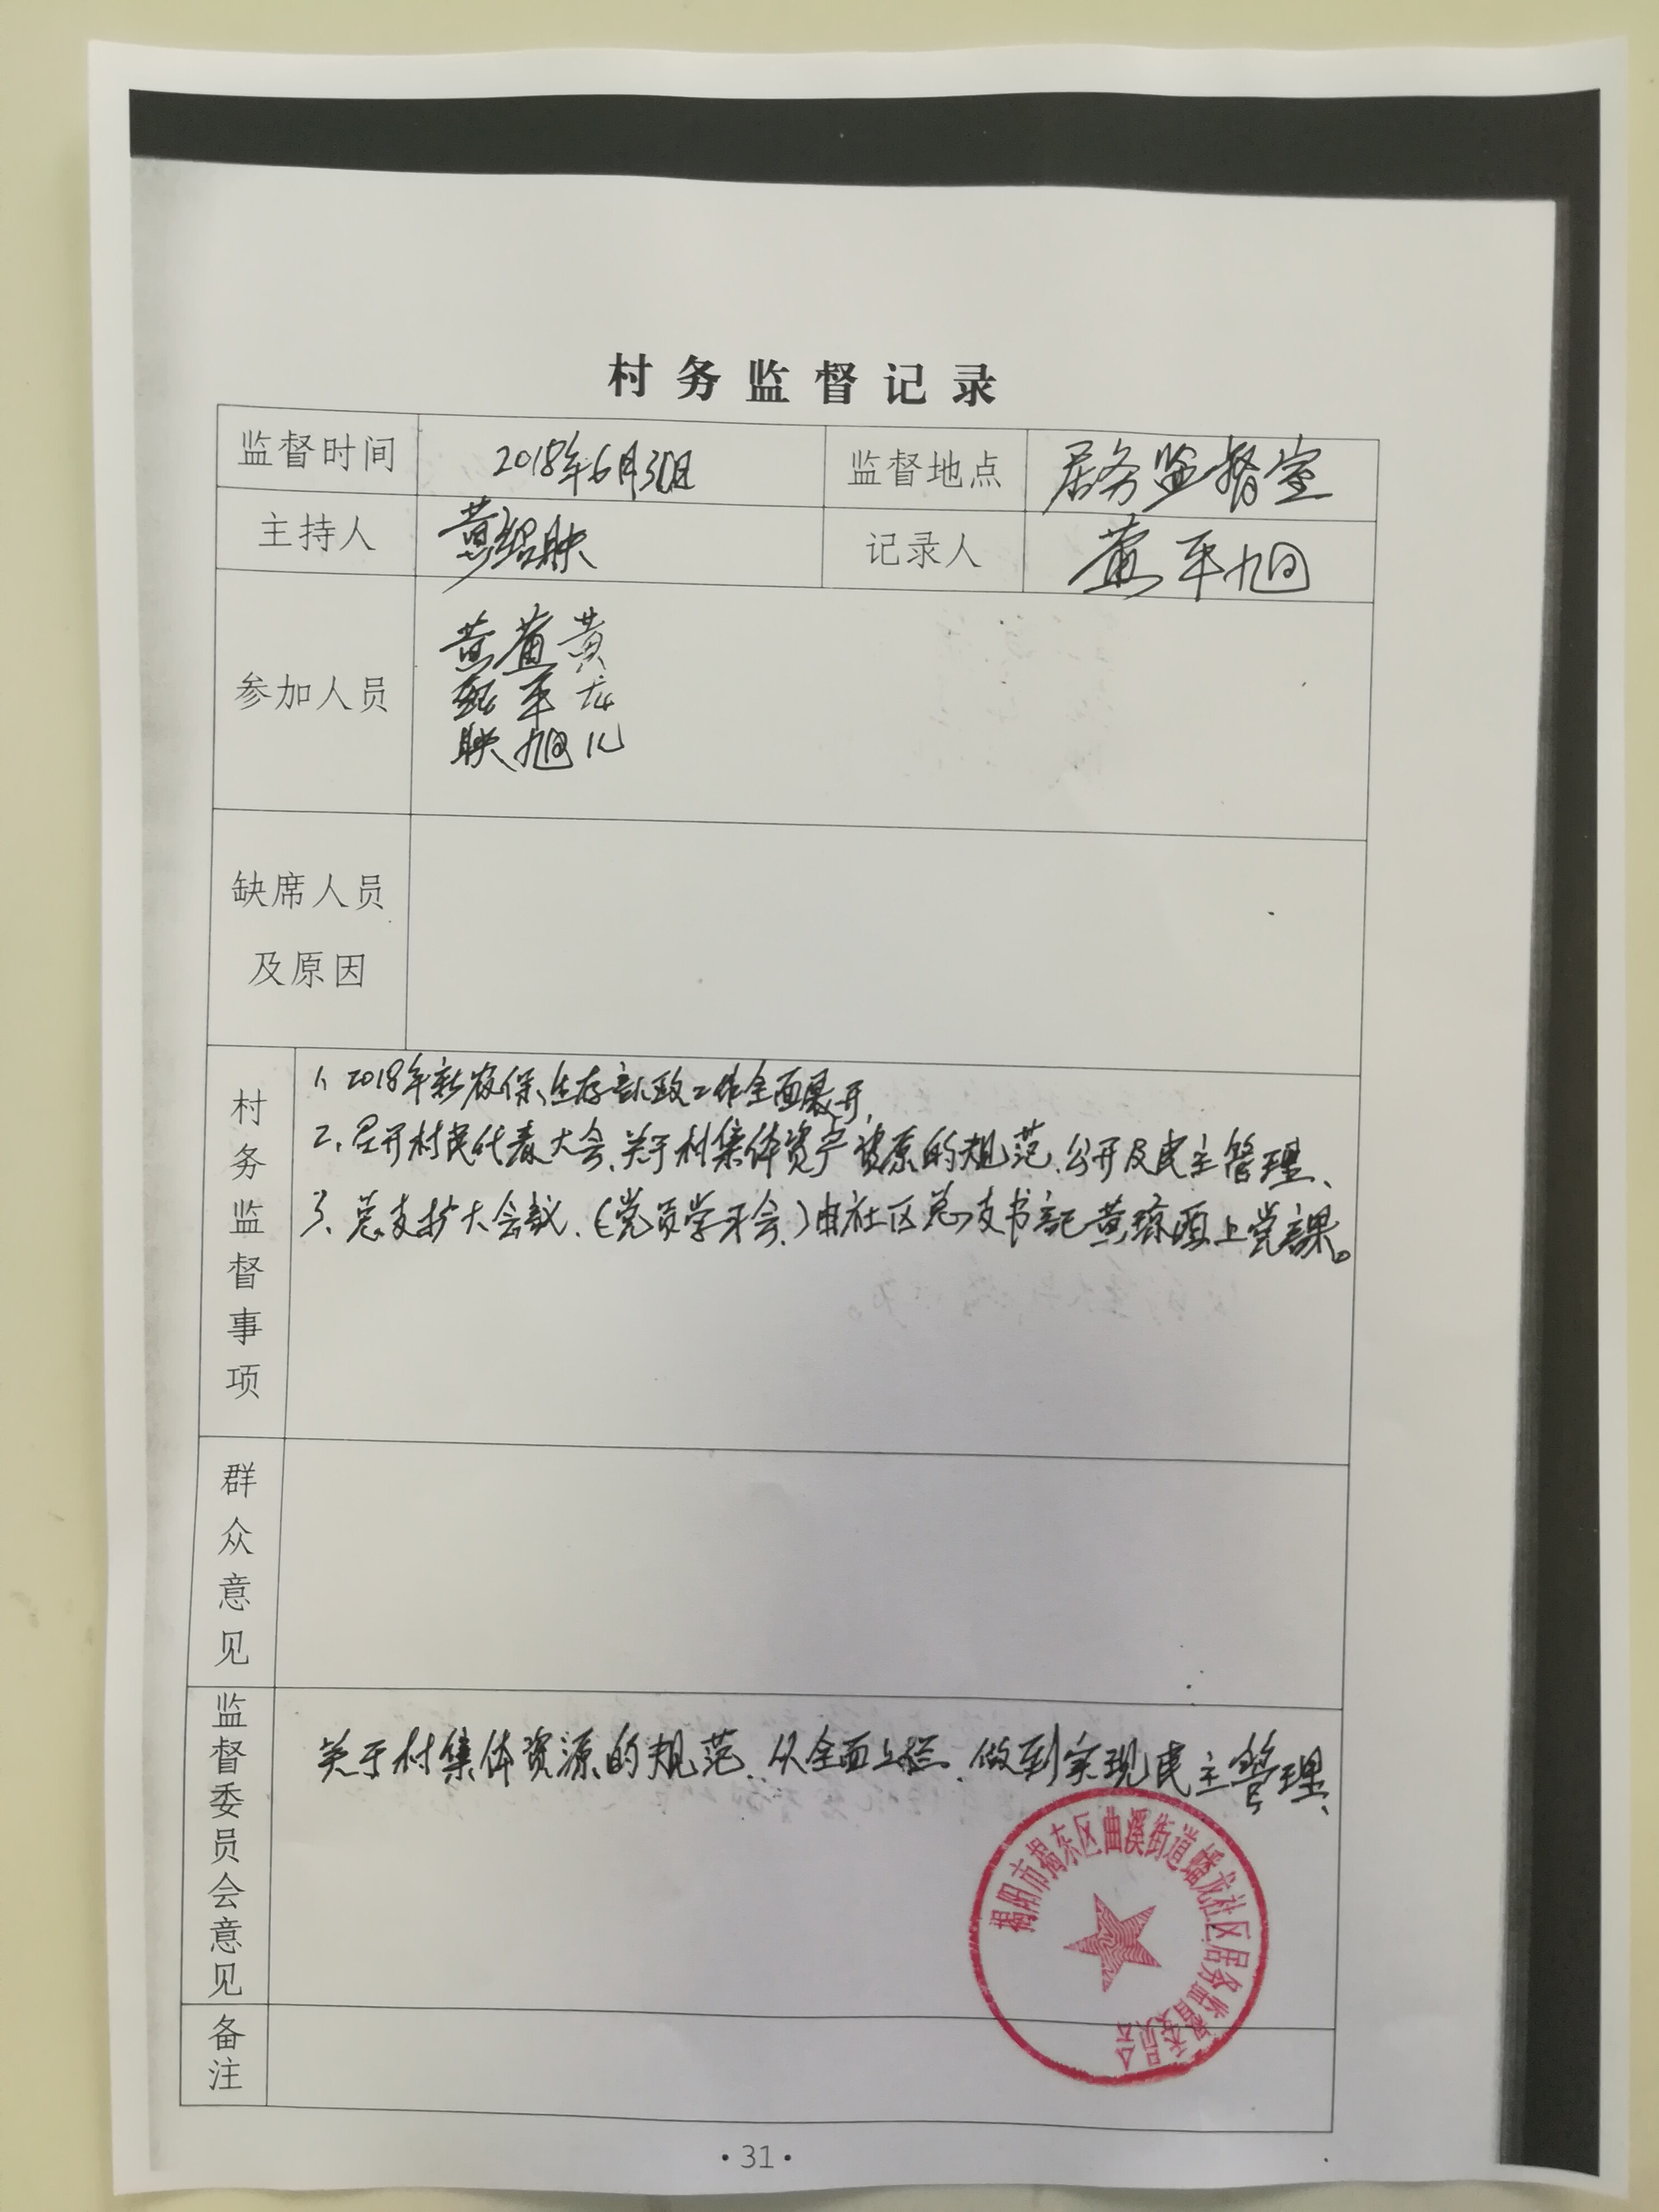 村务监督记录
监督时间 2018年6月30日 监督地点 居务监督室
主持人 黄绍映 记录人 黄平旭
参加人员 黄绍映 黄平旭 黄龙
缺席人员
及原因
村务监督事项
1、2018年新农保、生存认证工作全面展开,
2、召开村民代表大会、关于村集体资产资源的规范、公开及民主管理、
3、总支扩大会议、(党员学习会、)由社区总支书记黄上党课。
群众意见
监督委员会意见
关于村集体资源的规范、从全面上、做到实现民主管理、
揭阳市揭东区曲溪街道蟠龙社区居务监督委员会
备注
·31·